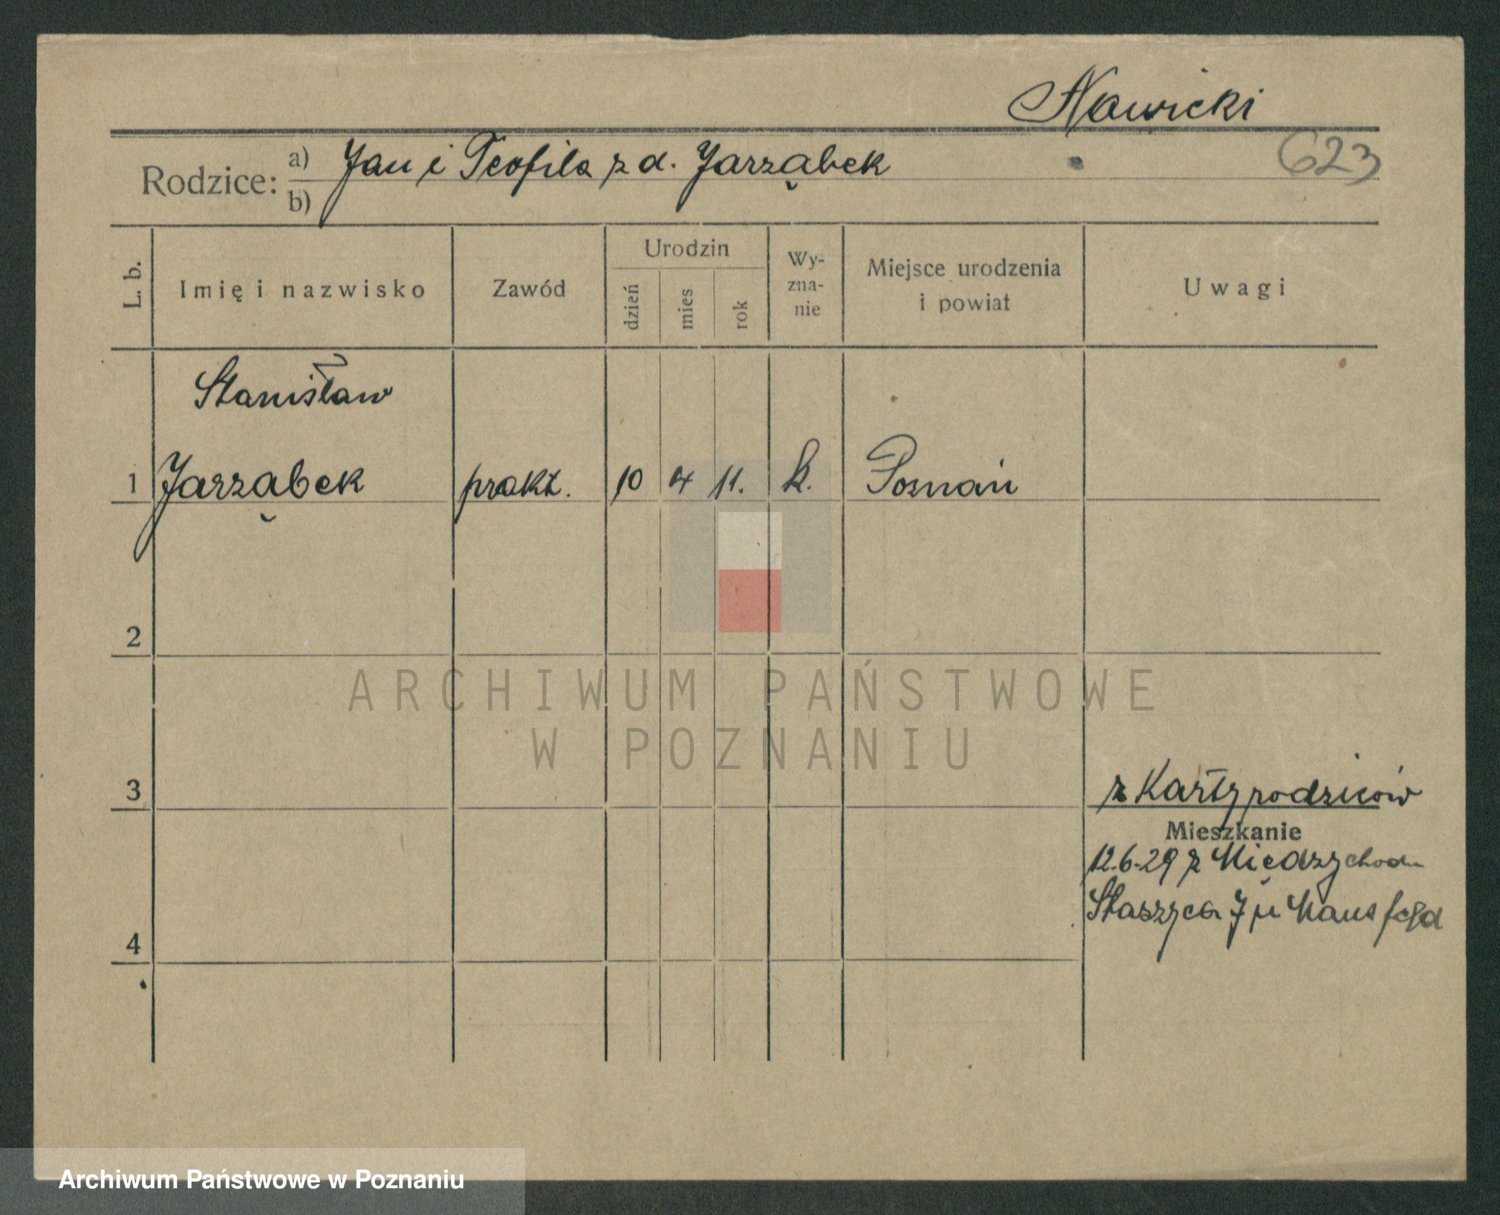 Nawicki
623
Rodzice: a) Jan i Teofila z d. Jarząbek
b)
L. b. Imię i nazwisko Zawód Urodzin dzień mies rok Wyznanie Miejsce urodzenia i powiat Uwagi
Stanisław
1 Jarząbek prakt. 10 4 11. k. Poznań
2
ARCHIWUM PAŃSTWOWE
W POZNANIU
z Karty rodziców
3
Mieszkanie
12.6.29 z Międzychodu
Staszyca 7 u
4
Archiwum Państwowe w Poznaniu